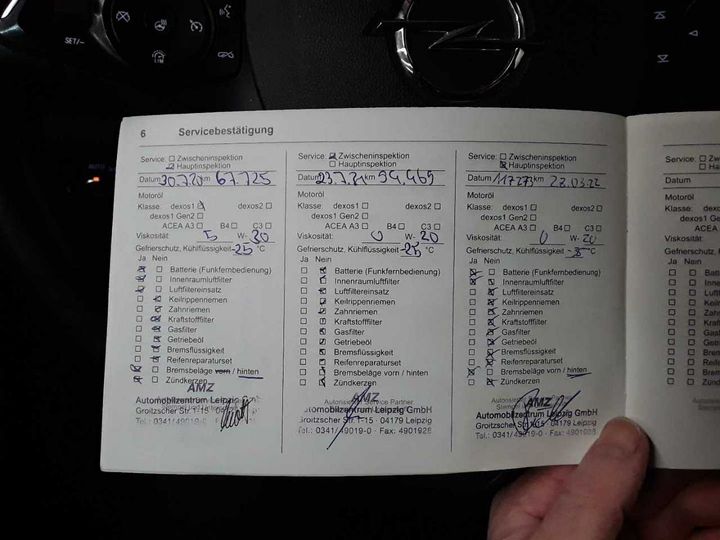 SET/–
AUTO
6 Servicebestätigung
Service: Zwischeninspektion
Hauptinspektion
Datum 30.7.20 km 67.725
Motoröl
Klasse: dexos1 dexos2
dexos1 Gen2
ACEA A3 B4 C3
Viskosität: 5 W- 30
Gefrierschutz, Kühlflüssigkeit -25 °C
Ja Nein
Batterie (Funkfernbedienung)
Innenraumluftfilter
Luftfiltereinsatz
Keilrippenriemen
Zahnriemen
Kraftstofffilter
Gasfilter
Getriebeöl
Bremsflüssigkeit
Reifenreparaturset
Bremsbeläge vorn / hinten
Zündkerzen
AMZ
Automobilzentrum Leipzig
Groitzscher Str. 1-15 04179 Leipzig
Tel.: 0341/49019-0
Service: Zwischeninspektion
Hauptinspektion
Datum 23.7.21 km 94.469
Motoröl
Klasse: dexos1 dexos2
dexos1 Gen2
ACEA A3 B4 C3
Viskosität: 0 W- 20
Gefrierschutz, Kühlflüssigkeit -25 °C
Ja Nein
Batterie (Funkfernbedienung)
Innenraumluftfilter
Luftfiltereinsatz
Keilrippenriemen
Zahnriemen
Kraftstofffilter
Gasfilter
Getriebeöl
Bremsflüssigkeit
Reifenreparaturset
Bremsbeläge vorn / hinten
Zündkerzen
Service Partner
AMZ
Automobilzentrum Leipzig GmbH
Groitzscher Str. 1-15 · 04179 Leipzig
Tel.: 0341/49019-0 · Fax: 4901928
Service: Zwischeninspektion
Hauptinspektion
Datum 117273 km 28.03.22
Motoröl
Klasse: dexos1 dexos2
dexos1 Gen2
ACEA A3 B4 C3
Viskosität: 0 W- 20
Gefrierschutz, Kühlflüssigkeit °C
Ja Nein
Batterie (Funkfernbedienung)
Innenraumluftfilter
Luftfiltereinsatz
Keilrippenriemen
Zahnriemen
Kraftstofffilter
Gasfilter
Getriebeöl
Bremsflüssigkeit
Reifenreparaturset
Bremsbeläge vorn / hinten
Zündkerzen
AMZ
Automobilzentrum Leipzig GmbH
Groitzscher Str. 1-15 · 04179 Leipzig
Tel.: 0341/49019-0 · Fax: 4901928
Service:
Datum
Motoröl
Klasse:
Viskosität:
Gefrierschutz
Ja Nein